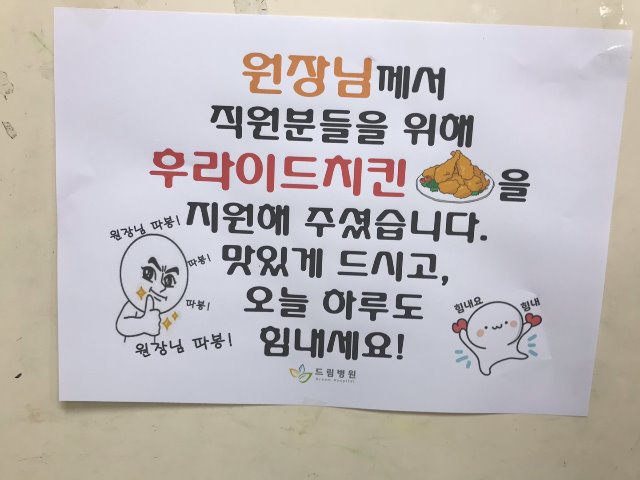 원장님께서
직원분들을 위해
후라이드치킨을
지원해 주셨습니다.
맛있게 드시고,
오늘 하루도
힘내세요!
원장님 따봉!
따봉!
따봉!
원장님 따봉!
힘내요
힘내
드림병원
Dream Hospital